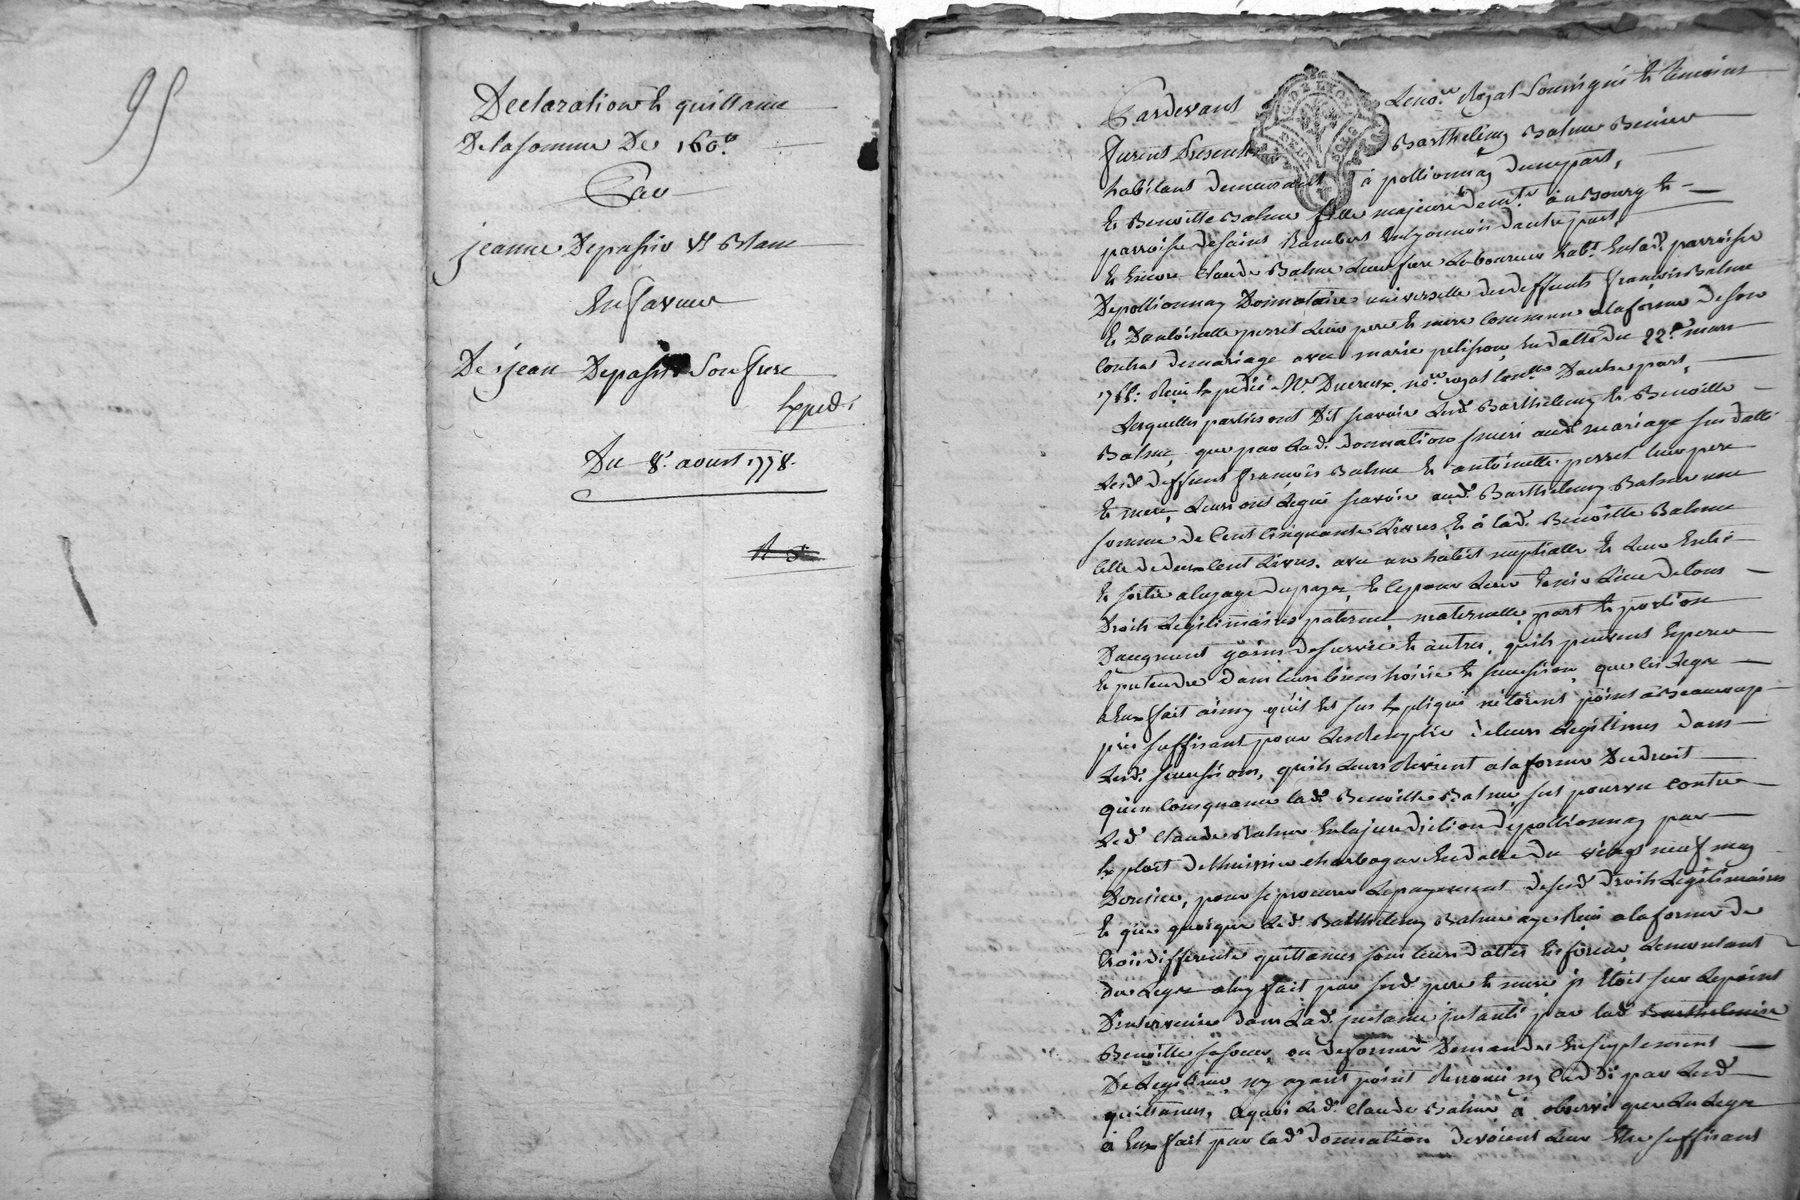 95
Declaration et quittance
De la somme De 160#
Par
jeanne Depassio Ve Blanc
En faveur
De jean Depassio Son frere
Exped.
Du 8e. aoust 1778.
Pardevant Le no.re Royal Soussigné et temoins
Furent Presents Barthelemy Balme Benier
habitant demeurant à pollionnay d'une part,
Et Benoitte Balme fille majeure demt. au Bourg et
parroisse de saint Rambert En Lyonnois d'autre part
Et Encore Claude Balme Leur frere Laboureur habt. En lad. parroisse
De pollionnay Donnataire universelle des deffunts françois Balme
Et D'antoinette perret Leur pere Et mere commune a la forme de son
Contrat de mariage avec marie pelisson En datte du 22e mars
Reçu Expedié Me. Ducreux no.re royal D'autre part,
Lesquelles parties ont Dit sçavoir Lesd. Barthelemy Et Benoitte
Balme, que par Lad. donnation audt. mariage sus datté
Lesd. deffunt françois Balme Et antoinette perret leur pere
Et mere, Leurs ont Legué sçavoir aud. Barthelemy Balme une
somme de Cent Cinquante Livres, Et à lad. Benoitte Balme
Celle de deux Cent Livres, avec un habit nuptialle Et
Et sortie a l'usage du pays, Et Ce pour Leur tenir Lieu de tous
Droits Legitimaires paternel, maternelle, part Et portion
D'augment gains de survie Et autres, qu'ils peuvent Esperer
Et pretendre dans leurs biens hoirie Et succession, que les Legs
a Eux fait ainsy qu'il Est sus Expliqué n'étoient point a Beaucoup
près suffisant pour Les remplir de leurs Legitimes dans
Lesd. successions, qu'ils Leurs a la forme Du droit
qu'en Consequence lad. Benoitte Balme, s'est pourvue contre
Led. Claude Balme En la jurediction de pollionnay par
Exploit de l'huissier En datte du vingt neuf may
Dernier, pour se procurer Le payement de sesd. droits Legitimaires
Et que quoique Led. Barthelemy Balme aye Reçu a la forme de
trois differente quittances sous leurs dattes Et forme, Le montant
du Legs a luy fait par sesd. pere Et mere, jl Etoit sur Le point
D'intervenir dans Lad. jnstance jntenté par lad. Barthelemise
Benoitte sa soeur, ou de former Demandes En suplement
De Legitime, n'y ayant point par Lesd.
quittances, a quoi Led. Claude Balme à observé que Les Legs
à Eux fait par lad. donnation devoient Leur Etre suffisant